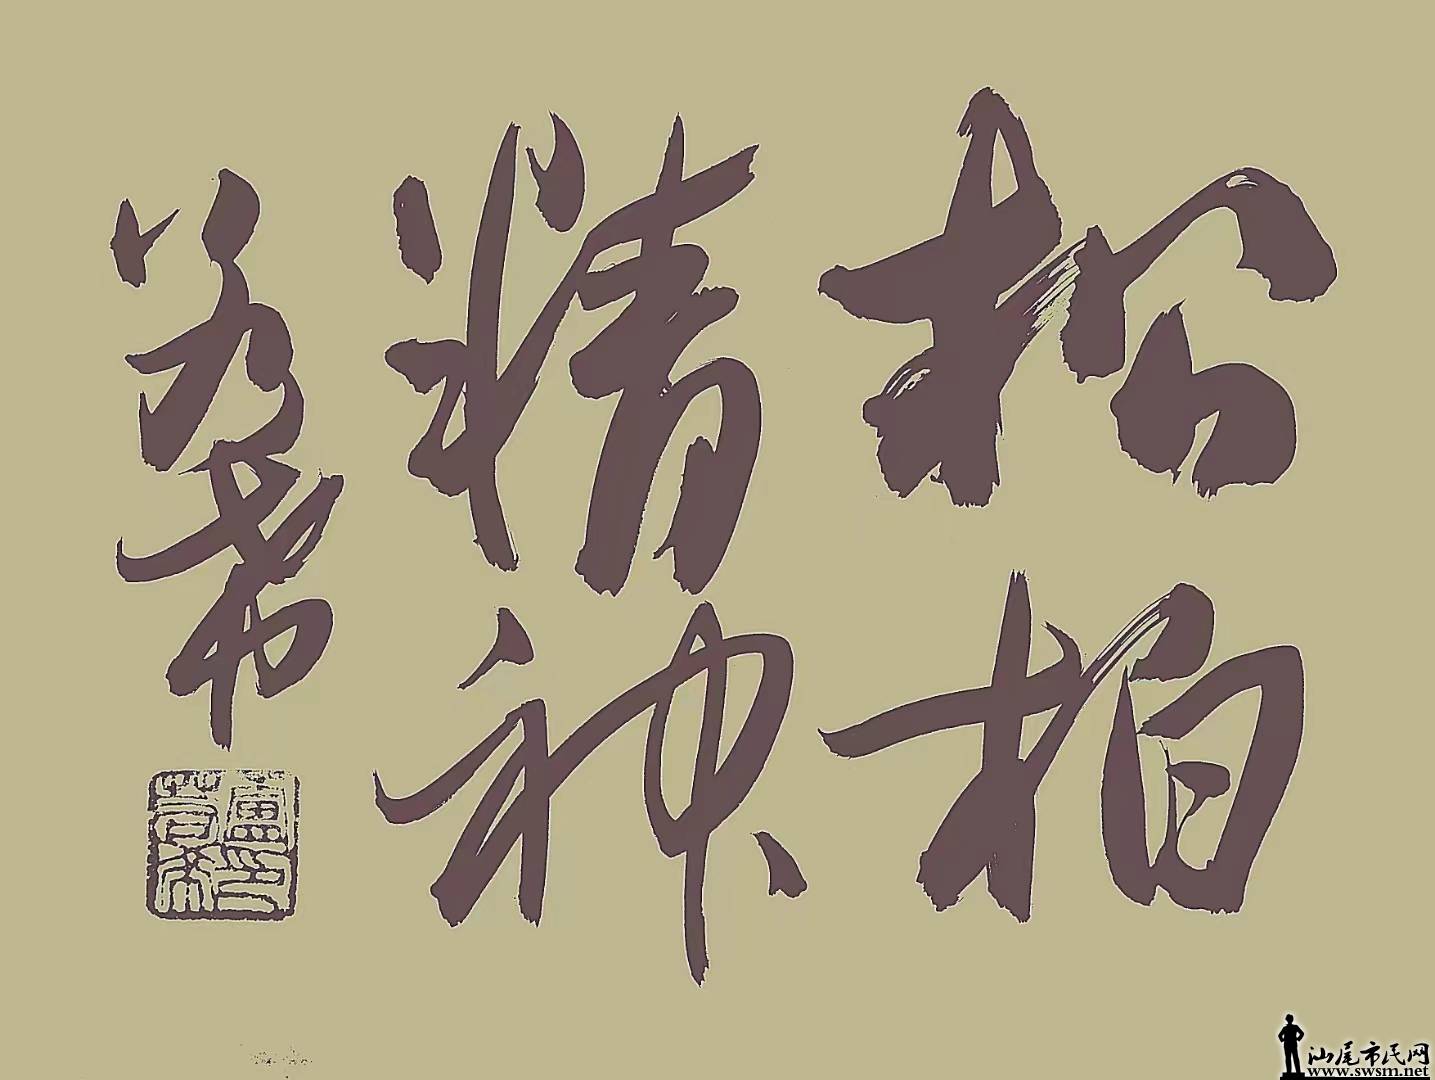 松柏
精神
若希
盧印
若希
汕尾市民网
www.swsm.net